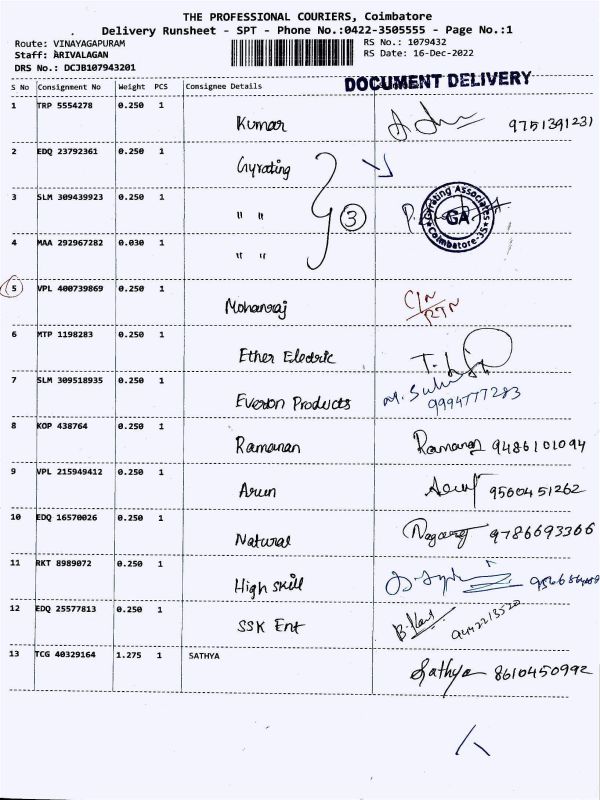 THE PROFESSIONAL COURIERS, Coimbatore
Delivery Runsheet - SPT - Phone No.:0422-3505555 - Page No.:1
Route: VINAYAGAPURAM RS No.: 1079432
Staff: ARIVALAGAN RS Date: 16-Dec-2022
DRS No.: DCJB107943201
DOCUMENT DELIVERY
S No Consignment No Weight PCS Consignee Details
1 TRP 5554278 0.250 1
Kumar 9751391231
2 EDQ 23792361 0.250 1
Gyrating
3 SLM 309439923 0.250 1
" " 3 Gyrating Associates GA Coimbatore-35
4 MAA 292967282 0.030 1
" "
5 VPL 400739869 0.250 1
Mohanraj C/N RTN
6 MTP 1198283 0.250 1
Ether Electric
7 SLM 309518935 0.250 1
Everon Products 9994777283
8 KOP 438764 0.250 1
Ramanan Ramanan 9486101094
9 VPL 215949412 0.250 1
Arun 9500451262
10 EDQ 16570026 0.250 1
Natural Nagaraj 9786693366
11 RKT 8989072 0.250 1
High skill
12 EDQ 25577813 0.250 1
SSK Ent 9442213520
13 TCG 40329164 1.275 1 SATHYA
Sathya 8610450992